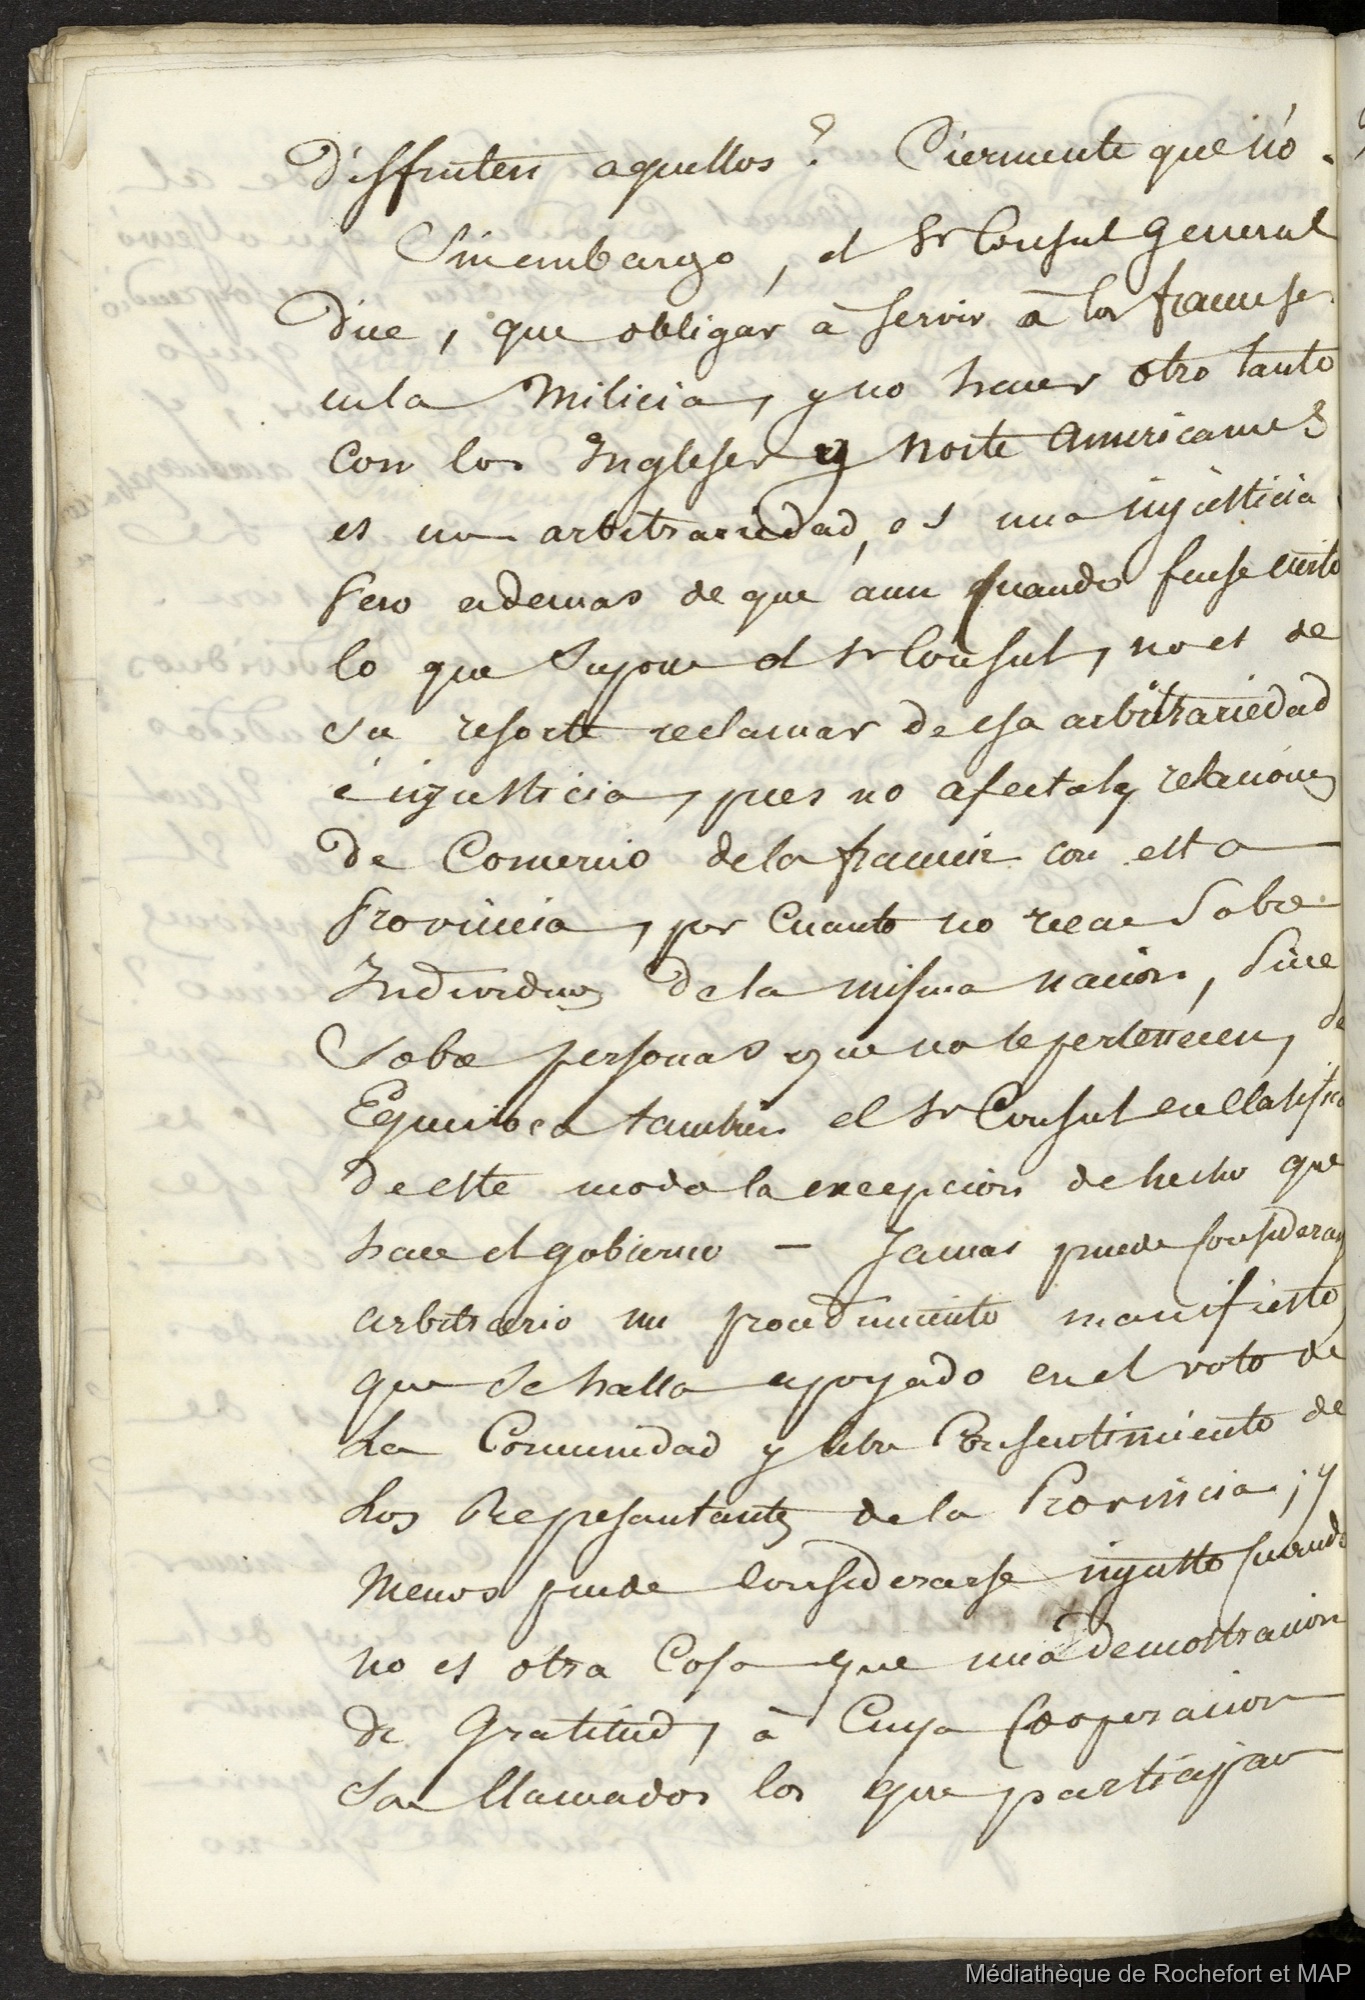 disfruten aquellos? Ciermente que nó.
Sinembargo, el Sr Consul General
dice, que obligar à servir a los franceses
enla Milicia, y no hacer otro tanto
con los Ingleses y Norte Americanos
es una arbitrariedad, es una injusticia
Pero ademas de que aun quando fuese cierto
lo que supone el Sr Consul, no es de
su resorte reclamar de esa arbitrariedad
é injusticia, pues no afecta las relaciones
de Comercio dela francia con esta
Provincia, por cuanto no recae sobre
Individuos dela misma nacion, sino
sobre personas que no le pertenecen, se
Equivoca tambien el Sr Consul en clasificar
de este modo la excepcion de hecho que
hace el gobierno – Jamas puede considerarse
arbitrario un procedimiento manifiesto,
que se halla apoyado en el voto de
la Comunidad y libre Consentimiento de
los Represantantes dela Provincia; y
menos puede considerarse injusto cuando
no es otra cosa que una demostracion
de Gratitud, à cuya Cooperacion
son llamados los que participan
Médiathèque de Rochefort et MAP